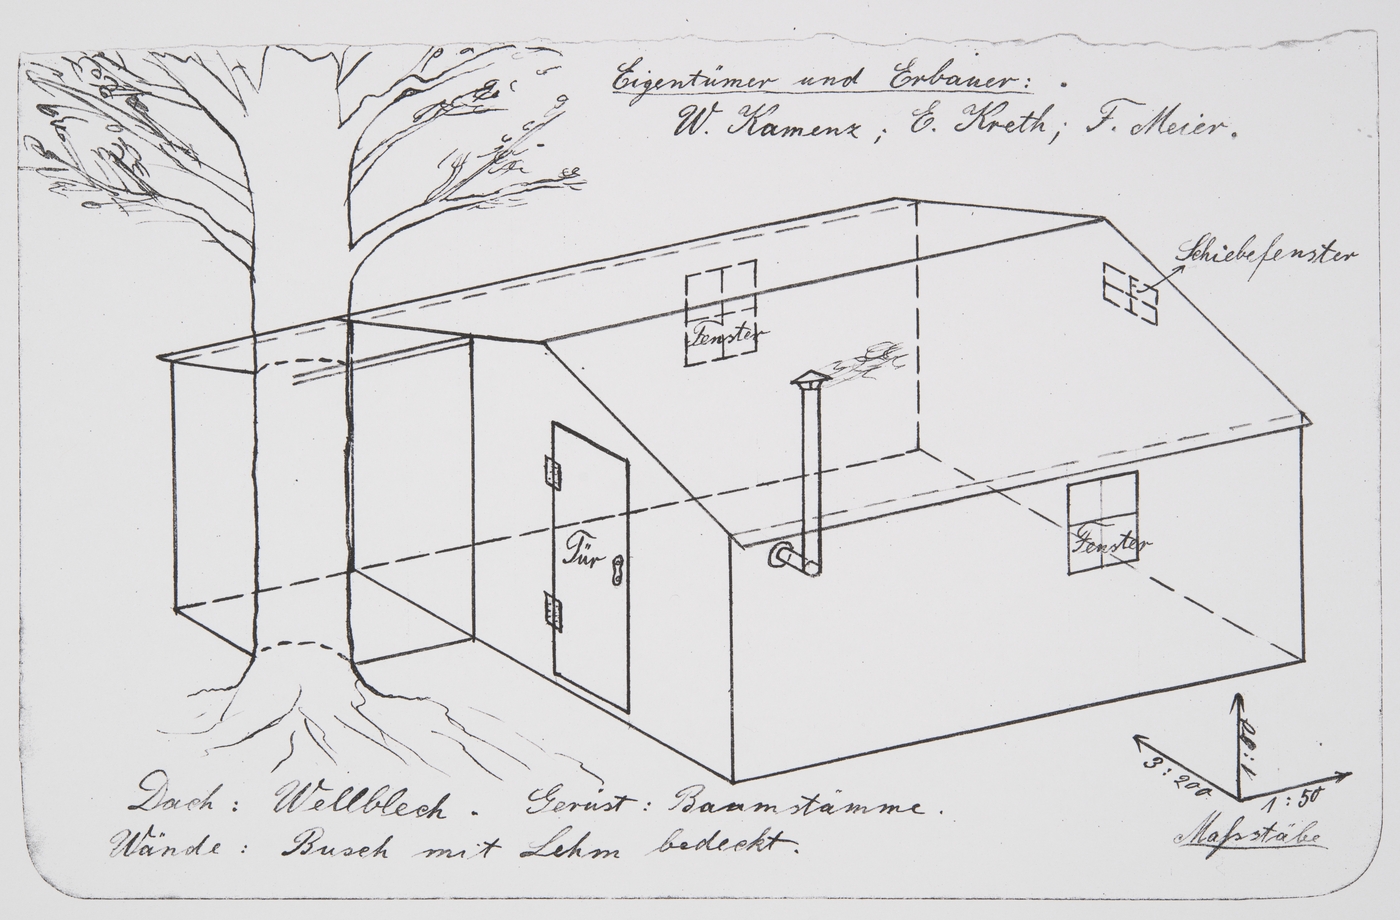 Eigentümer und Erbauer:
W. Kamenz; E. Kreth; F. Meier.
Schiebefenster
Fenster
Tür
Fenster
3:200
1:50
Maßstäbe
Dach: Wellblech. Gerüst: Baumstämme.
Wände: Busch mit Lehm bedeckt.